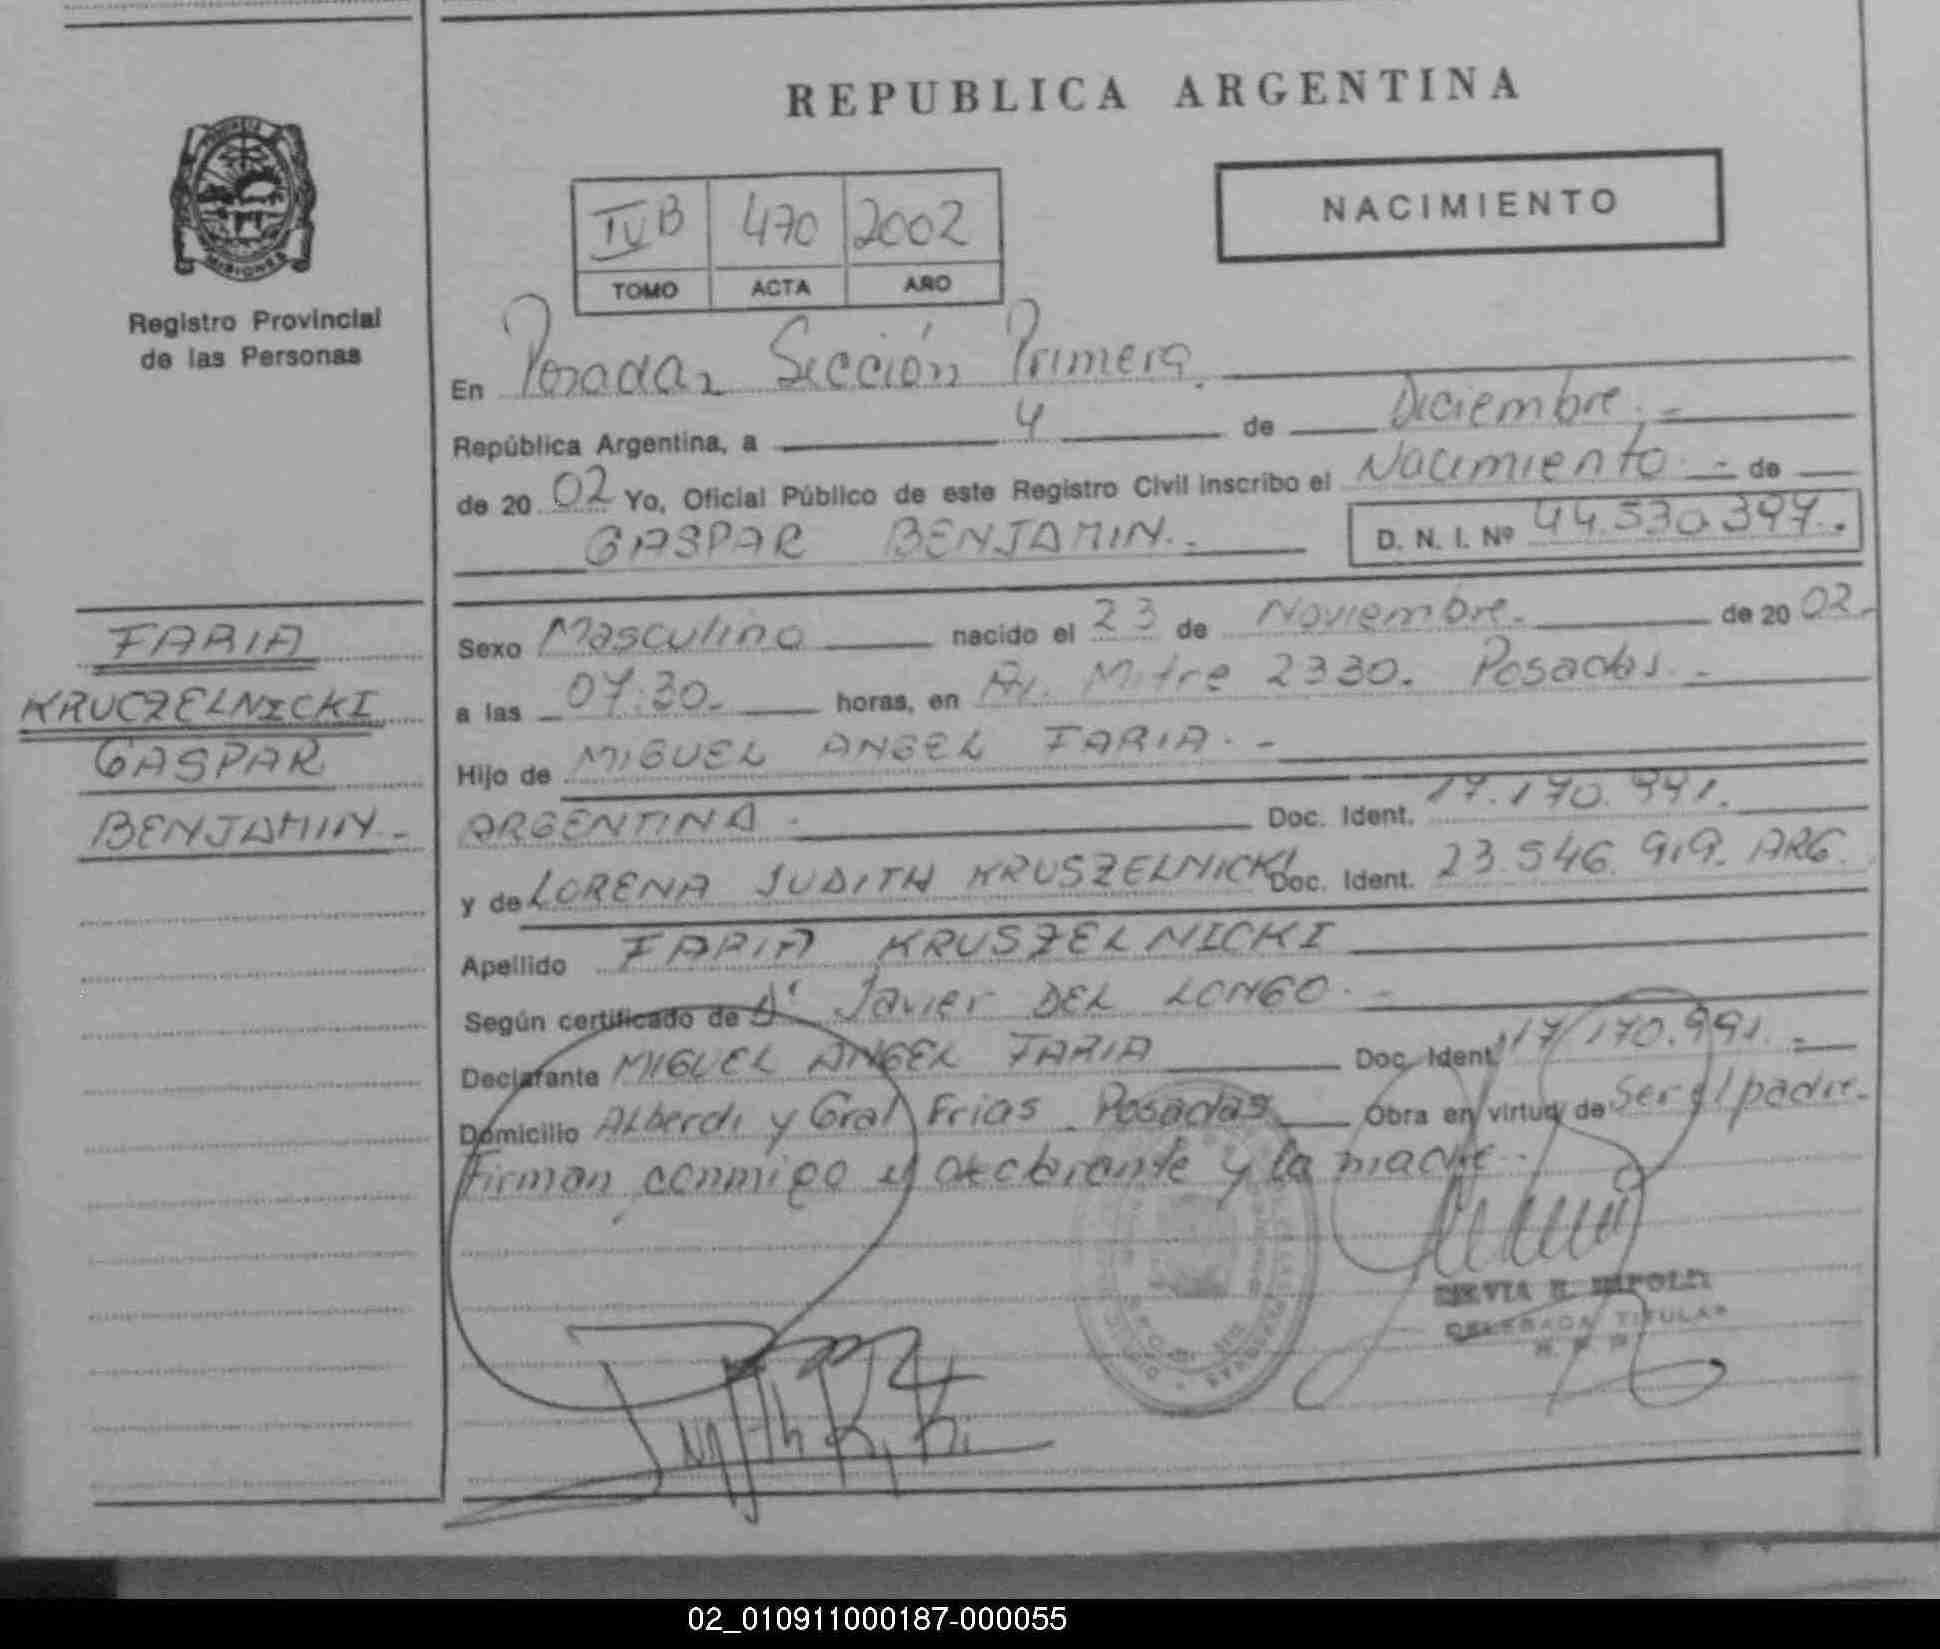 REPUBLICA ARGENTINA
NACIMIENTO
IVB 470 2002
TOMO ACTA AÑO
MISIONES
Registro Provincial
de las Personas
En Posadas Sección Primera.
República Argentina, a 4 de Diciembre.
de 20 02 Yo, Oficial Público de este Registro Civil inscribo el Nacimiento de
GASPAR BENJAMIN. D. N. I. Nº 44.530.397.
FARIA
KRUCZELNICKI
GASPAR
BENJAMIN
Sexo Masculino nacido el 23 de Noviembre. de 20 02.
a las 07:30. horas, en Av. Mitre 2330. Posadas.
Hijo de MIGUEL ANGEL FARIA.
ARGENTINA Doc. Ident. 17.170.991.
y de LORENA JUDITH KRUSZELNICKI Doc. Ident. 23.546.919. ARG.
Apellido FARIA KRUSZELNICKI
Según certificado de Dr Javier DEL LONGO.
Declarante MIGUEL ANGEL FARIA Doc. Ident. 17.170.991.
Domicilio Alberdi y Gral Frias Posadas Obra en virtud de Ser el padre.
Firman conmigo el declarante y la madre.
DELEGADA TITULAR
02_010911000187-000055